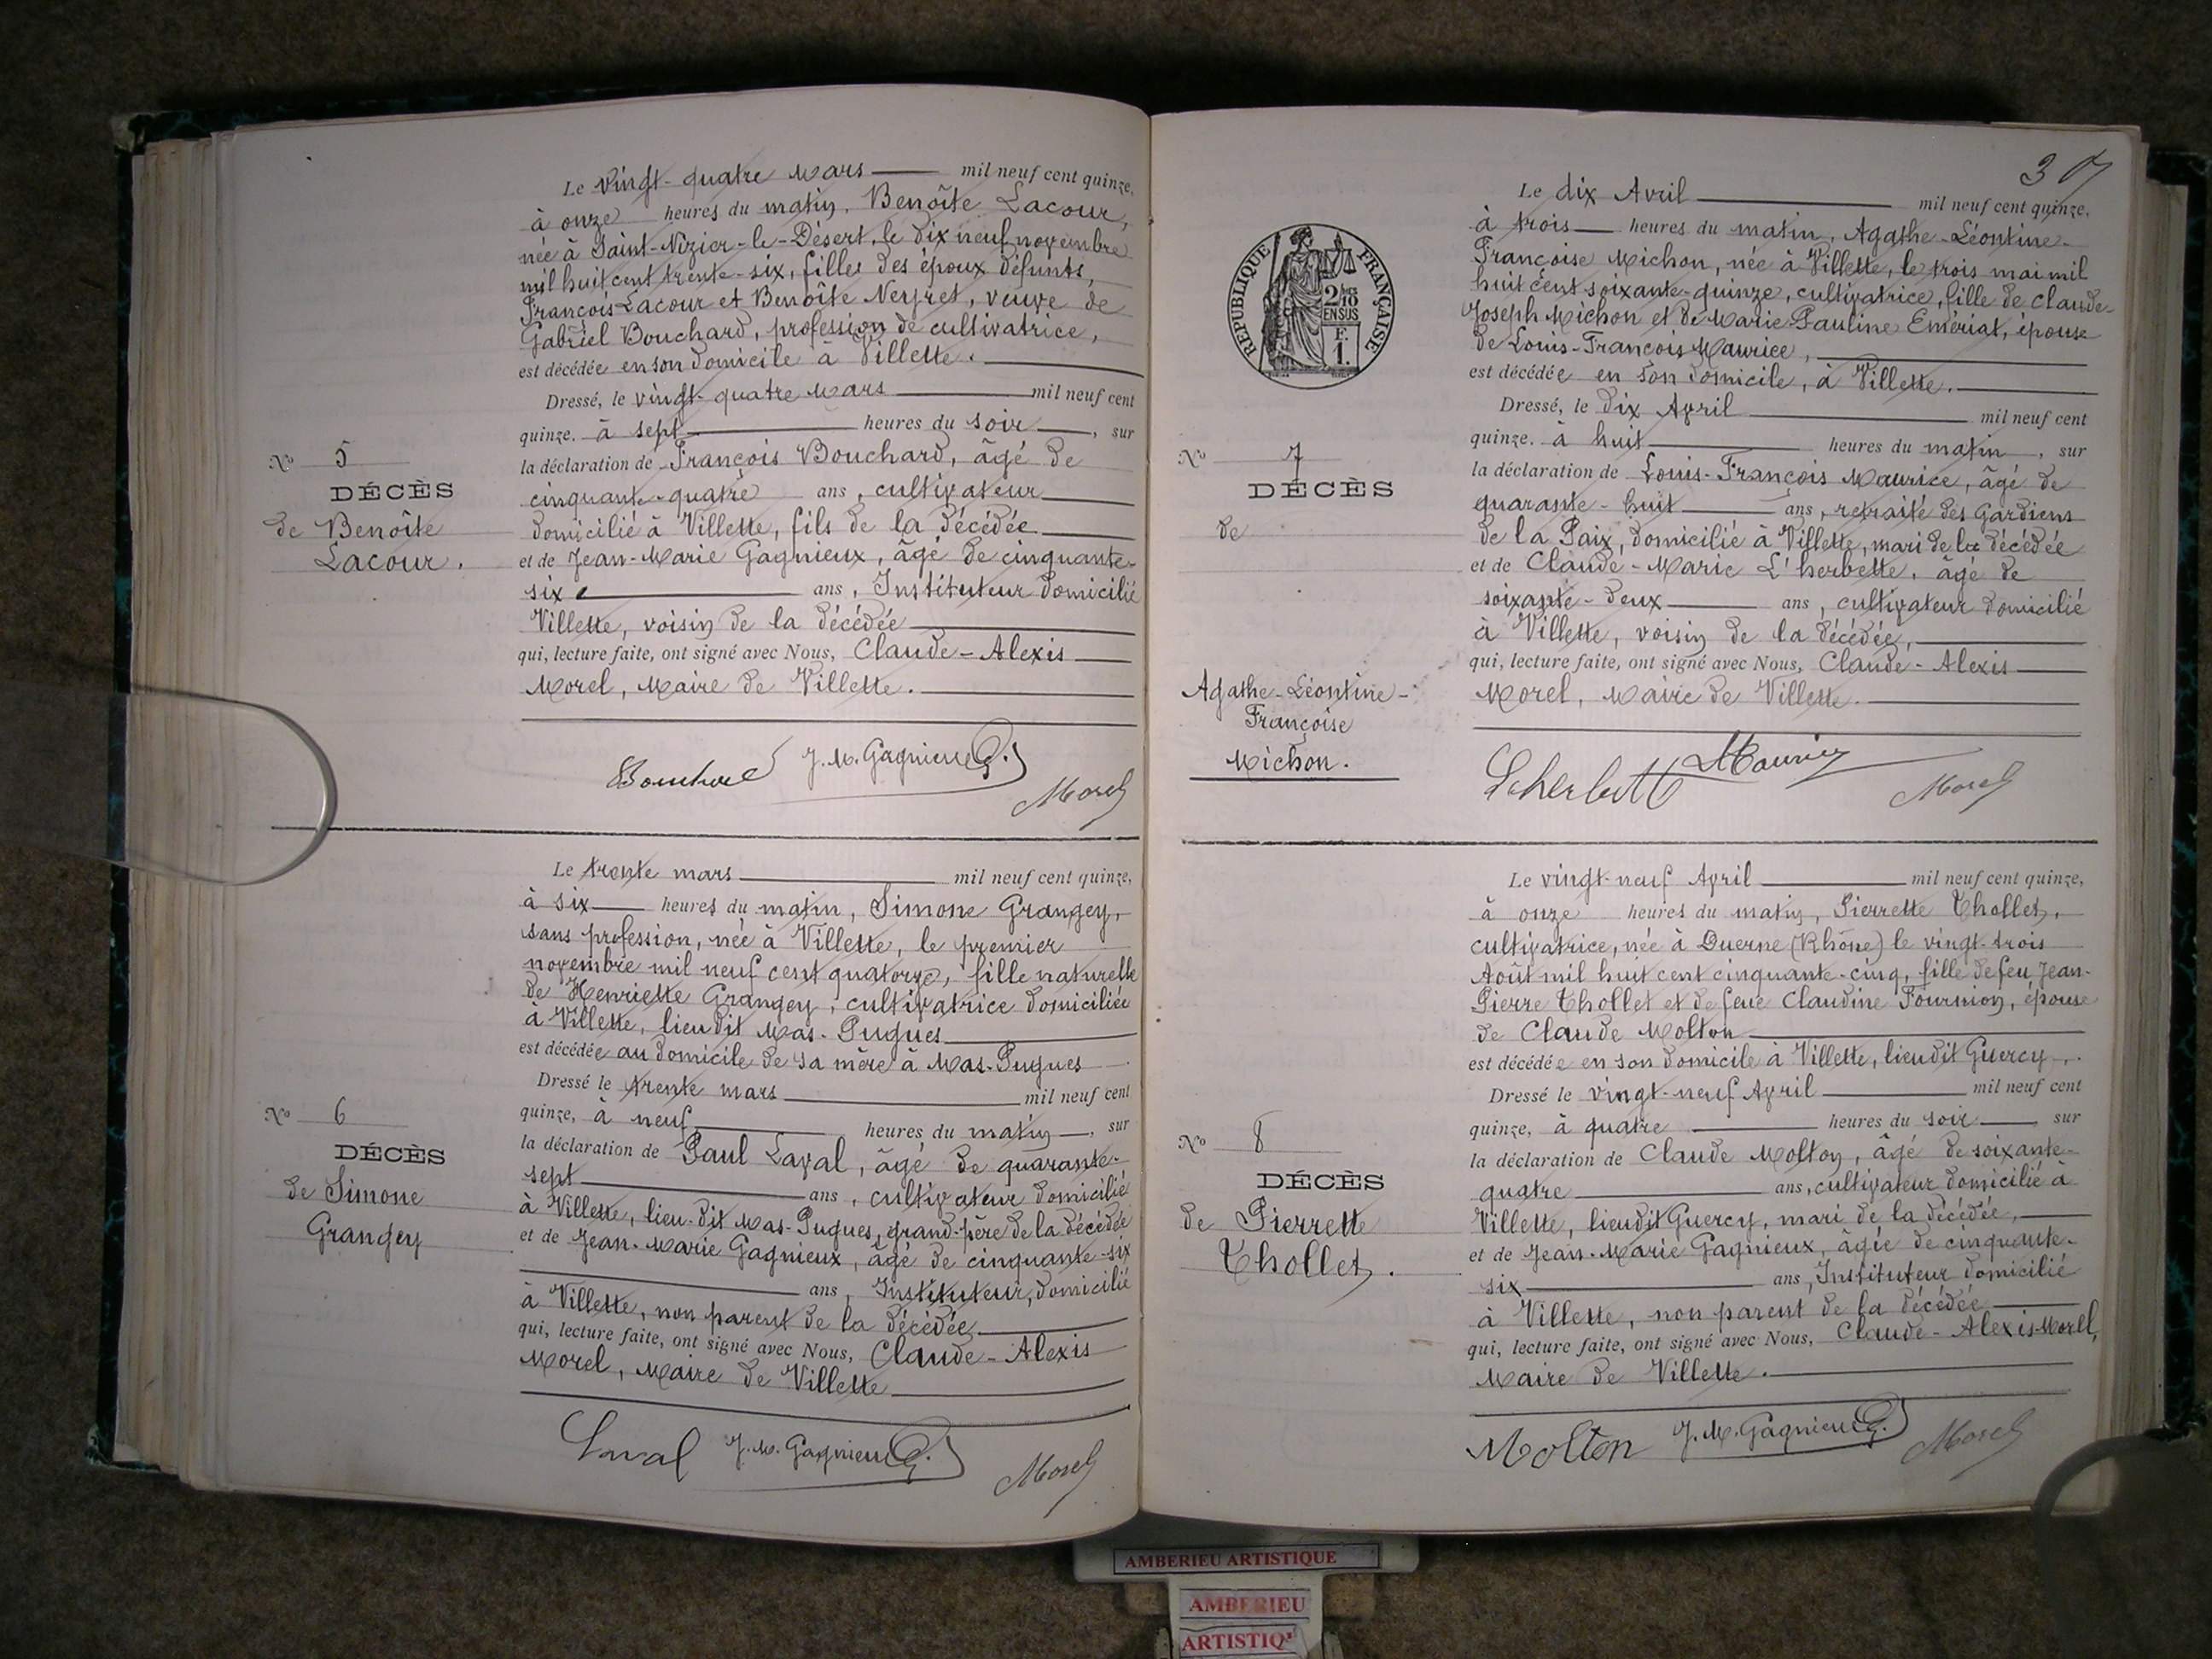 Le vingt-quatre Mars mil neuf cent quinze,
à onze heures du matin, Benoîte Lacour,
née à Saint-Nizier-le-Désert, le dix neuf novembre
mil huit cent trente-six, filles des époux défunts,
François Lacour et Benoîte Neyret, veuve de
Gabriel Bouchard, profession de cultivatrice,
est décédée en son domicile à Villette.
Dressé, le vingt-quatre Mars mil neuf cent
quinze. à sept heures du soir, sur
la déclaration de François Bouchard, âgé de
cinquante-quatre ans, cultivateur
domicilié à Villette, fils de la décédée
et de Jean-Marie Gagnieux, âgé de cinquante-
six ans, Instituteur domicilié
Villette, voisin de la décédée
qui, lecture faite, ont signé avec Nous, Claude-Alexis
Morel, Maire de Villette.
N° 5
DÉCÈS
de Benoîte
Lacour.
Bouchard J. M. Gagnieux
Morel
Le trente mars mil neuf cent quinze,
à six heures du matin, Simone Grangey,
sans profession, née à Villette, le premier
novembre mil neuf cent quatorze, fille naturelle
de Henriette Grangey, cultivatrice domiciliée
à Villette, lieu dit Mas-Pugues
est décédée au domicile de sa mère à Mas-Pugues
Dressé le trente mars mil neuf cent
quinze, à neuf heures du matin, sur
la déclaration de Paul Laval, âgé de quarante-
sept ans, cultivateur domicilié
à Villette, lieu-dit Mas-Pugues, grand-père de la décédée
et de Jean-Marie Gagnieux, âgé de cinquante-six
ans, Instituteur, domicilié
à Villette, non parent de la décédée
qui, lecture faite, ont signé avec Nous, Claude-Alexis
Morel, Maire de Villette
N° 6
DÉCÈS
de Simone
Grangey
Laval J. M. Gagnieux
Morel
307
RÉPUBLIQUE FRANÇAISE
2/10
EN SUS
F.
1.
Le dix Avril mil neuf cent quinze,
à trois heures du matin, Agathe-Léontine-
Françoise Michon, née à Villette, le trois mai mil
huit cent soixante-quinze, cultivatrice, fille de Claude-
Joseph Michon et de Marie-Pauline Emériat, épouse
de Louis-François Maurice,
est décédée en son domicile, à Villette.
Dressé, le dix Avril mil neuf cent
quinze. à huit heures du matin, sur
la déclaration de Louis-François Maurice, âgé de
quarante-huit ans, retraité des Gardiens
de la Paix, domicilié à Villette, mari de la décédée
et de Claude-Marie L'herbette, âgé de
soixante-deux ans, cultivateur domicilié
à Villette, voisin de la décédée,
qui, lecture faite, ont signé avec Nous, Claude-Alexis
Morel, Maire de Villette.
N° 7
DÉCÈS
de
Agathe-Léontine-
Françoise
Michon.
Lherbette Maurice
Morel
Le vingt-neuf Avril mil neuf cent quinze,
à onze heures du matin, Pierrette Thollet,
cultivatrice, née à Duerne (Rhône) le vingt-trois
Août mil huit cent cinquante-cinq, fille de feu Jean-
Pierre Thollet et de feue Claudine Fournion, épouse
de Claude Molton
est décédée en son domicile à Villette, lieu dit Guercy.
Dressé le vingt-neuf Avril mil neuf cent
quinze, à quatre heures du soir, sur
la déclaration de Claude Molton, âgé de soixante-
quatre ans, cultivateur domicilié à
Villette, lieu dit Guercy, mari de la décédée,
et de Jean-Marie Gagnieux, âgée de cinquante-
six ans, Instituteur domicilié
à Villette, non parent de la décédée
qui, lecture faite, ont signé avec Nous, Claude-Alexis Morel,
Maire de Villette.
N° 8
DÉCÈS
de Pierrette
Thollet.
Molton J. M. Gagnieux
Morel
AMBERIEU ARTISTIQUE
AMBERIEU
ARTISTIQ